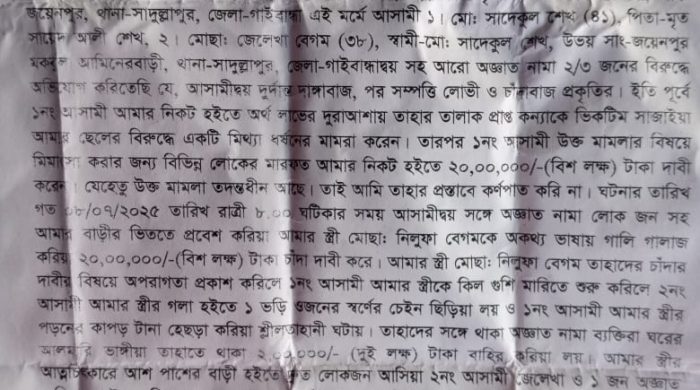 জয়েনপুর, থানা-সাদুল্লাপুর, জেলা-গাইবান্ধা এই মর্মে আসামী ১। মোঃ সাদেকুল শেখ (৪১), পিতা-মৃত
আলী শেখ, ২। মোছাঃ জেলেখা বেগম (৩৮), স্বামী-মোঃ সাদেকুল শেখ, উভয় সাং-জয়েনপুর
আমিনেরবাড়ী, থানা-সাদুল্লাপুর, জেলা-গাইবান্ধাদ্বয় সহ আরো অজ্ঞাত নামা ২/৩ জনের বিরুদ্ধে
অভিযোগ করিতেছি যে, আসামীদ্বয় দুর্দান্ত দাঙ্গাবাজ, পর সম্পত্তি লোভী ও চাঁদাবাজ প্রকৃতির। ইতি পূর্বে
১নং আসামী আমার নিকট হইতে অর্থ লাভের দুরাআশায় তাহার তালাক প্রাপ্ত কন্যাকে ভিকটিম সাজাইয়া
আমার ছেলের বিরুদ্ধে একটি মিথ্যা ধর্ষনের মামলা করেন। তারপর ১নং আসামী উক্ত মামলার বিষয়ে
মিমাংসা করার জন্য বিভিন্ন লোকের মারফত আমার নিকট হইতে ২০,০০,০০০/-(বিশ লক্ষ) টাকা দাবী
করেন। যেহেতু উক্ত মামলা তদন্তধীন আছে। তাই আমি তাহার প্রস্তাবে কর্ণপাত করি না। ঘটনার তারিখ
গত ০৮/০৭/২০২৫ তারিখ রাত্রী ৮.০০ ঘটিকার সময় আসামীদ্বয় সঙ্গে অজ্ঞাত নামা লোক জন সহ
আমার বাড়ীর ভিততে প্রবেশ করিয়া আমার স্ত্রী মোছাঃ নিলুফা বেগমকে অকথ্য ভাষায় গালি গালাজ
করিয়া ২০,০০,০০০/-(বিশ লক্ষ) টাকা চাঁদা দাবী করে। আমার স্ত্রী মোছাঃ নিলুফা বেগম তাহাদের চাঁদার
দাবীর বিষয়ে অপরাগতা প্রকাশ করিলে ১নং আসামী আমার স্ত্রীকে কিল গুশি মারিতে শুরু করিলে ২নং
আসামী আমার স্ত্রীর গলা হইতে ১ ভড়ি ওজনের স্বর্ণের চেইন ছিড়িয়া লয় ও ১নং আসামী আমার স্ত্রীর
পড়নের কাপড় টানা হেছড়া করিয়া শ্লীলতাহানী ঘটায়। তাহাদের সঙ্গে থাকা অজ্ঞাত নামা ব্যক্তিরা ঘরের
আলমারি ভাঙ্গীয়া তাহাতে থাকা ২,০০,০০০/- (দুই লক্ষ) টাকা বাহির করিয়া লয়। আমার স্ত্রীর
আত্মচিৎকারে আশ পাশের বাড়ী হইতে লোকজন আসিয়া ২নং আসামী জেলেখা ও ১ জন অজ্ঞাত